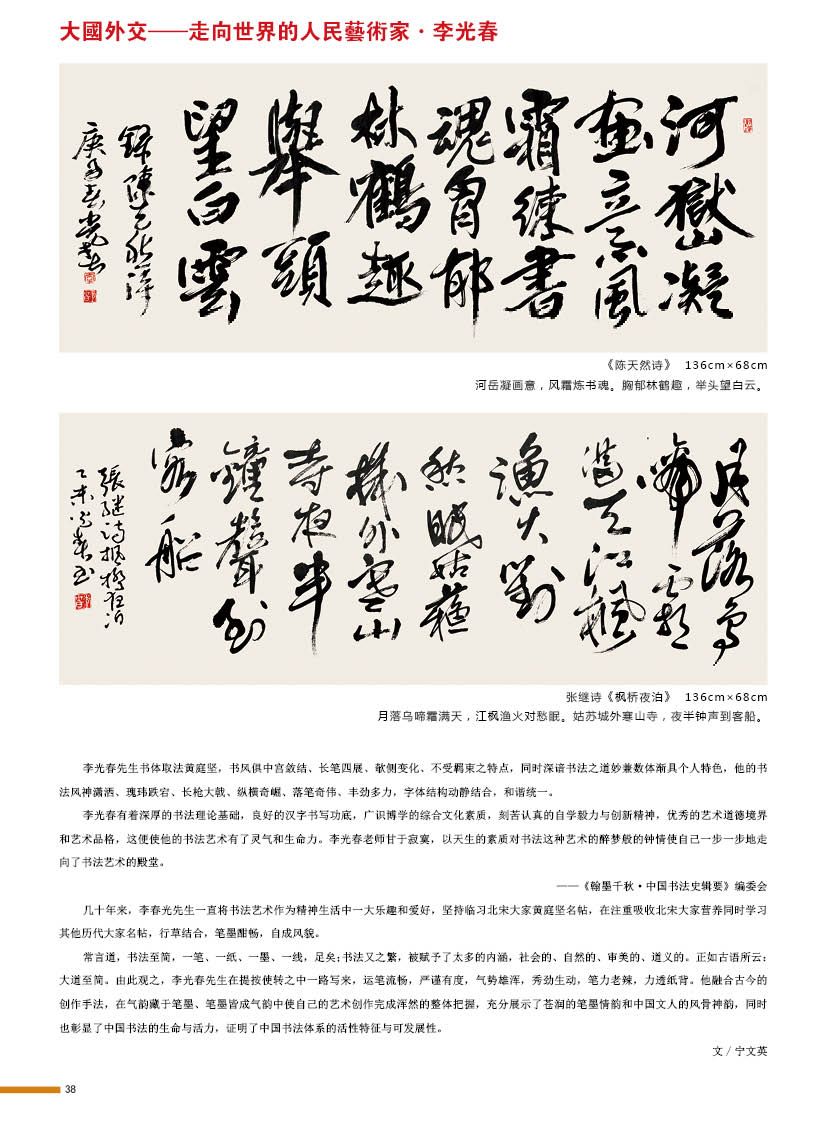 大國外交——走向世界的人民藝術家·李光春
河嶽凝
畫意風
霜練書
魂胷郁
林鶴趣
舉頭
望白雲
錄陳天然詩
庚子春光
《陈天然诗》 136cm×68cm
河岳凝画意，风霜炼书魂。胸郁林鹤趣，举头望白云。
月落烏
啼霜
滿天江楓
漁火對
愁眠姑蘇
城外寒山
寺夜半
鐘聲到
客船
張継诗楓橋夜泊
乙未光春书
张继诗《枫桥夜泊》 136cm×68cm
月落乌啼霜满天，江枫渔火对愁眠。姑苏城外寒山寺，夜半钟声到客船。
李光春先生书体取法黄庭坚，书风俱中宫敛结、长笔四展、欹侧变化、不受羁束之特点，同时深谙书法之道妙兼数体渐具个人特色，他的书
法风神潇洒、瑰玮跌宕、长枪大戟、纵横奇崛、落笔奇伟、丰劲多力，字体结构动静结合，和谐统一。
李光春有着深厚的书法理论基础，良好的汉字书写功底，广识博学的综合文化素质，刻苦认真的自学毅力与创新精神，优秀的艺术道德境界
和艺术品格，这便使他的书法艺术有了灵气和生命力。李光春老师甘于寂寞，以天生的素质对书法这种艺术的醉梦般的钟情使自己一步一步地走
向了书法艺术的殿堂。
——《翰墨千秋·中国书法史辑要》编委会
几十年来，李春光先生一直将书法艺术作为精神生活中一大乐趣和爱好，坚持临习北宋大家黄庭坚名帖，在注重吸收北宋大家营养同时学习
其他历代大家名帖，行草结合，笔墨酣畅，自成风貌。
常言道，书法至简，一笔、一纸、一墨、一线，足矣；书法又之繁，被赋予了太多的内涵，社会的、自然的、审美的、道义的。正如古语所云：
大道至简。由此观之，李光春先生在提按使转之中一路写来，运笔流畅，严谨有度，气势雄浑，秀劲生动，笔力老辣，力透纸背。他融合古今的
创作手法，在气韵藏于笔墨、笔墨皆成气韵中使自己的艺术创作完成浑然的整体把握，充分展示了苍润的笔墨情韵和中国文人的风骨神韵，同时
也彰显了中国书法的生命与活力，证明了中国书法体系的活性特征与可发展性。
文 / 宁文英
38